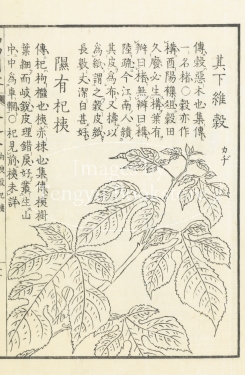 其下維穀
カヂ
傳穀惡木也集傳
一名楮○穀亦作
構酉陽雜俎穀田
久廢必生構葉有
辨曰楮無辨曰構
陸疏今江南人績
其皮爲布又擣以
爲紙謂之穀皮紙
長數丈潔白甚好
隰有杞桋
傳杞枸檵也桋赤楝也集傳桋樹
葉細而岐銳皮理錯戾好叢生山
中中爲車輞○杞見前桋未詳